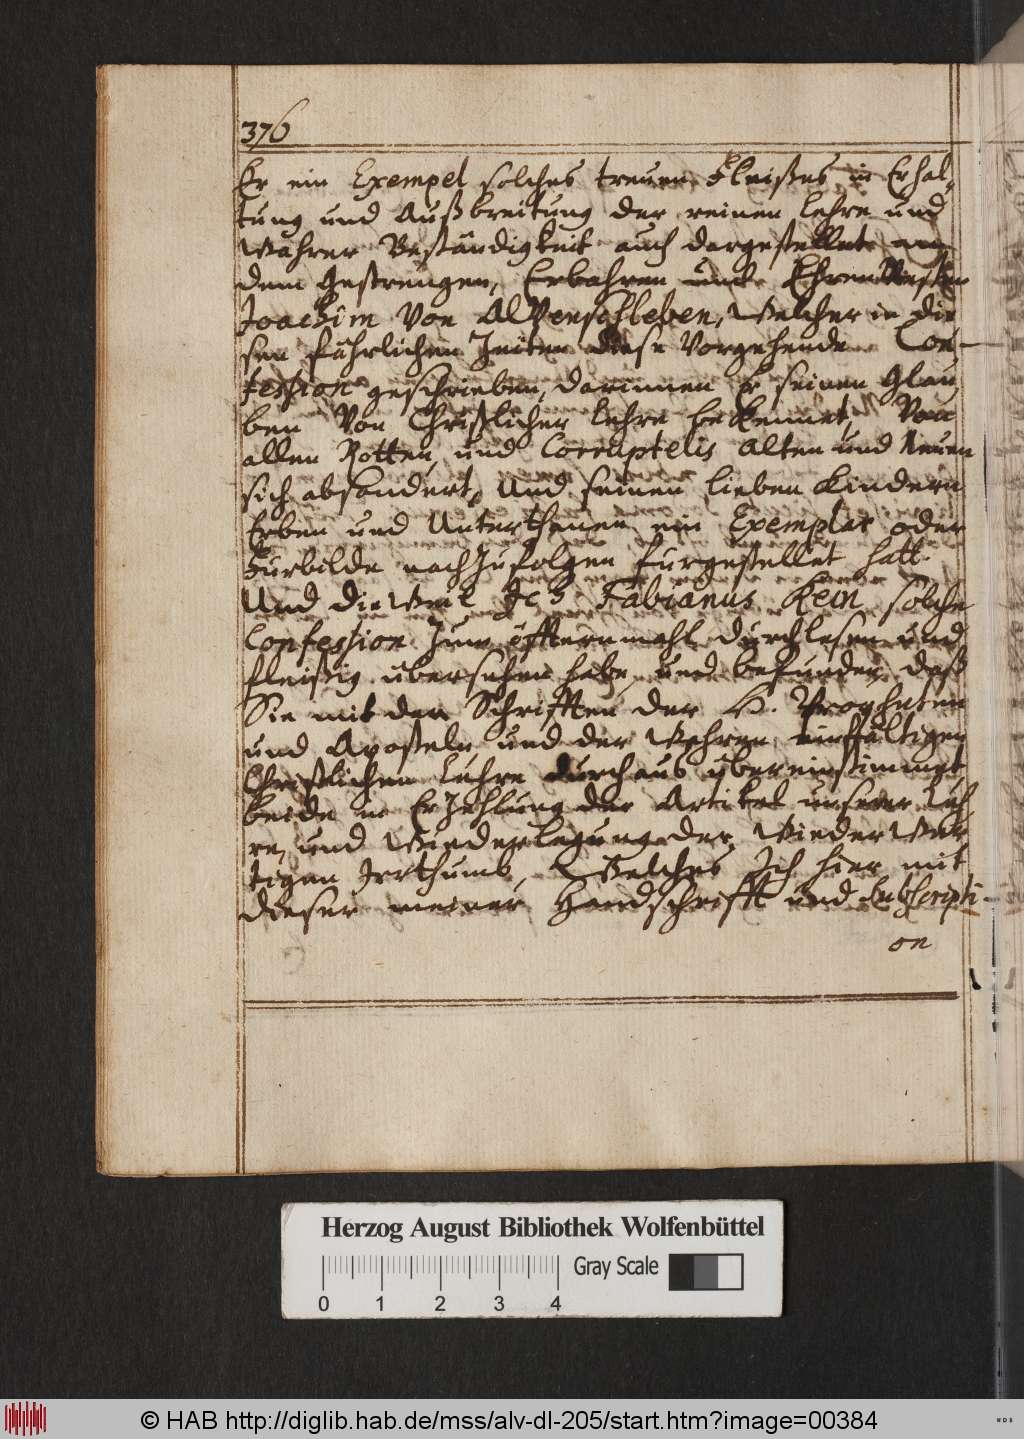 376
Er ein Exempel solches treuen Fleißes in Erhal-
tung und Außbreitung der reinen Lehre und
Wahrer Beständigkeit auch dargestellet an
dem Gestrengen, Erbahren und EhrenVesten
Joachim Von AlVenschleben, Welcher in die
sen fährlichen Zeiten diese Vorgehende Con-
fession geschrieben, darinnen Er seinen Glau
ben Von Christlicher Lehre bekennet, Von
allen Rotten und Corruptelis Alten und Neuen
sich absondert, Und seinen lieben Kindern
Erben und Unterthanen ein Exemplar oder
Furbilde nachZufolgen furgestellet hatt.
Und dieWeil Ich Fabianus Kein solche
Confession Zum öffternmahl durchlesen und
fleißig ubersehen habe, und befunden, daß
Sie mit den Schrifften der H. Propheten
und Aposteln und der Wahren einfältigen
Christlichen Lehre durchaus ubereinstimmet
beide in ErZehlung der Artikel unserer Leh
re, und Wiederlegung der WiederWer
tigen Irrthumb, Welches Ich hier mit
dieser meiner Handschrifft und Subscripti-
on
Herzog August Bibliothek Wolfenbüttel
Gray Scale
0 1 2 3 4
© HAB http://diglib.hab.de/mss/alv-dl-205/start.htm?image=00384